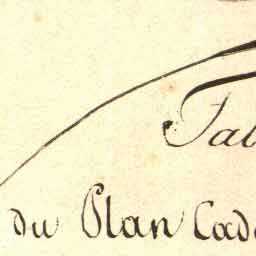 Tab
du Plan Cad